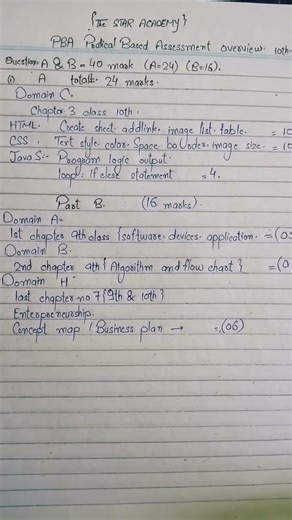 {The STAR ACADEMY}
PBA Pratical Based Assessment overview. 10th
Question: A & B = 40 mark (A=24) (B=16).
(1) A total: 24 marks.
Domain C:
Chapter 3 class 10th.
HTML. Create sheet, addlink, image list, table. = 10
CSS. Text style, color, Space, border, image size. = 10
Java S:- Program logic output.
loop: If else statement = 4.
Part B. (16 marks).
Domain A=
1st chapter 9th class {software, devices, application. =(0
Domain B.
2nd chapter 9th {Algorithm and flow chart} =(0
Domain H:
last chapter no 7 {9th & 10th}
Enterpreneurship.
Concept map / Business plan → =.(06)